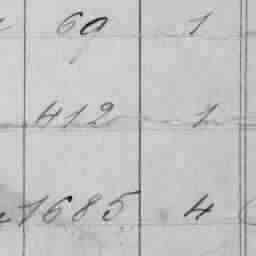 69 1
412 1
1685 4